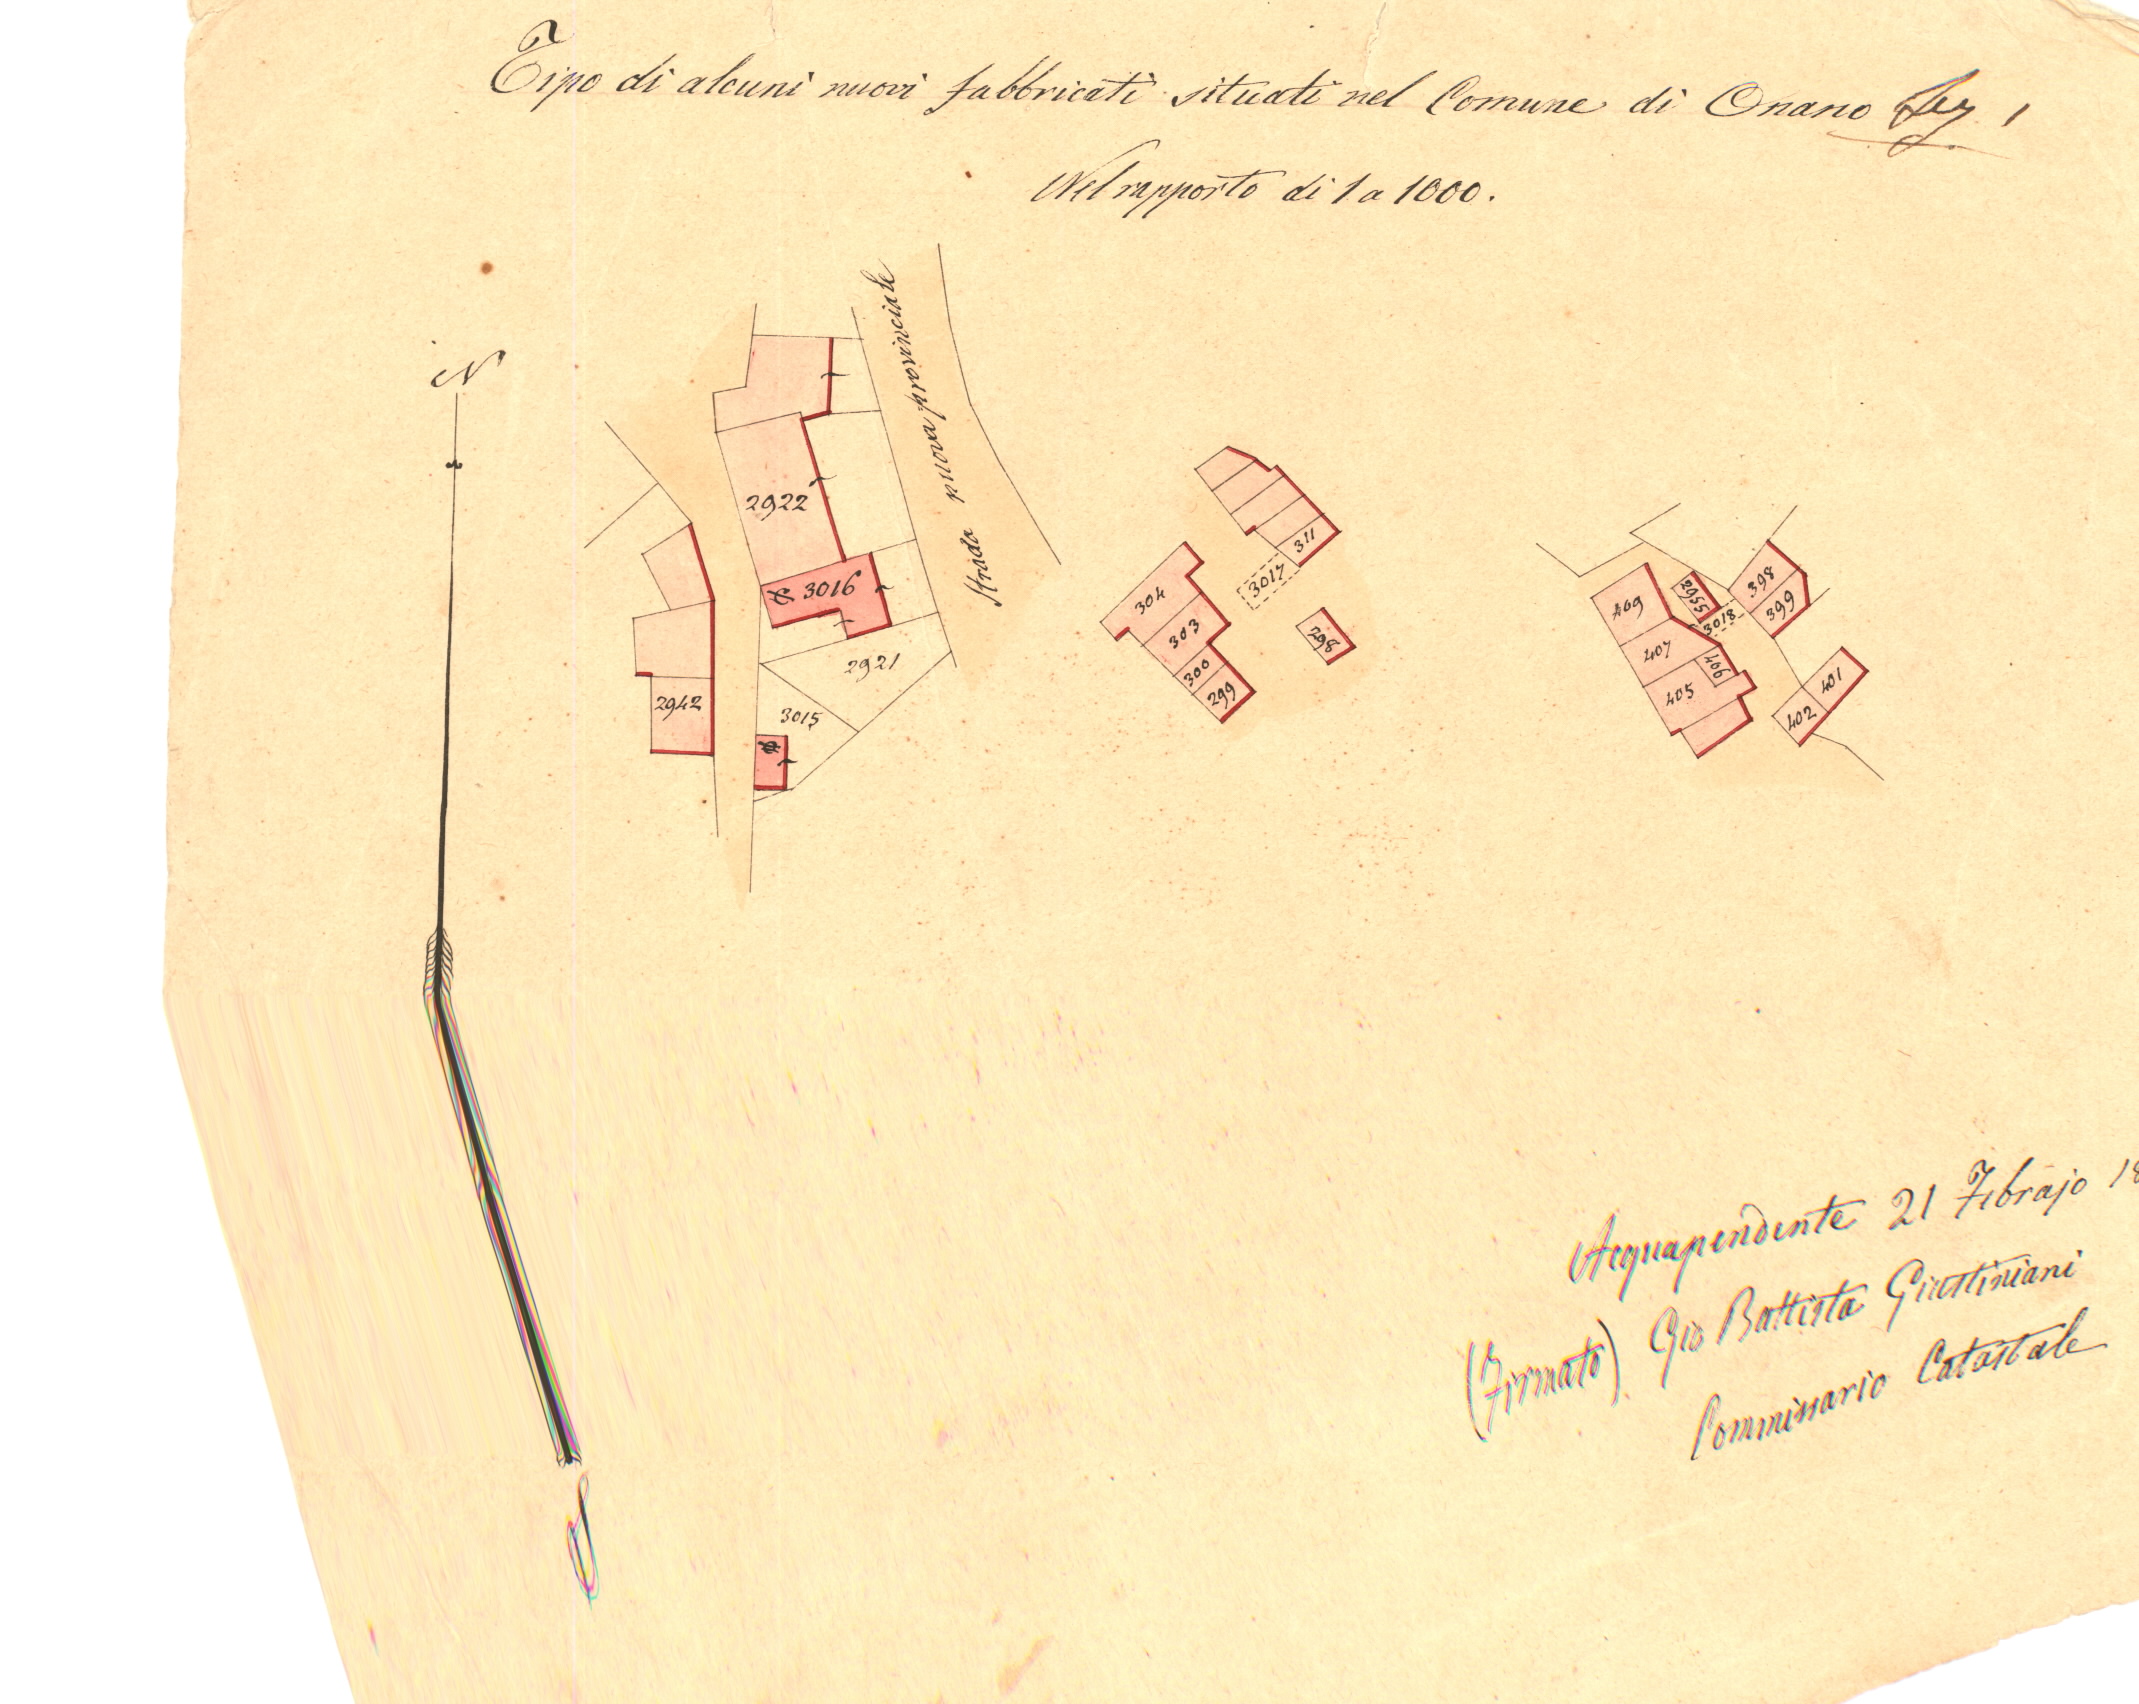 Tipo di alcuni nuovi fabbricati situati nel Comune di Onano Sez. 1
Nel rapporto di 1 a 1000.
N
Strada nuova provinciale
2922
3016
2921
3015
2942
311
3017
304
303
300
299
298
409
407
406
405
2955
3018
398
399
401
402
Acquapendente 21 Febrajo 18
(Firmato) Gio Battista Giustiniani
Commissario Catastale